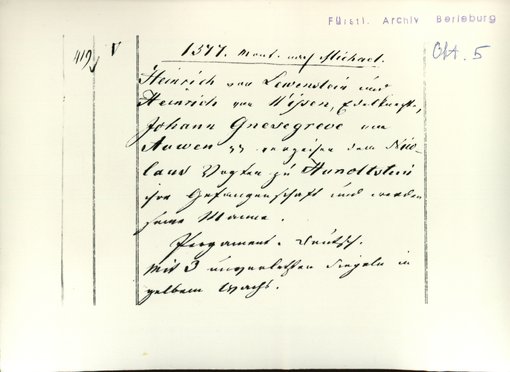 Fürstl. Archiv Berleburg
Okt. 5
419 V 1377. Mont. nach Michael.
Heinrich von Lewenstein und
Heinrich von Wesen, Edelknechte,
Johann Gnesegreve von
Auwen verzeihen dem Nico-
laus Vogten zu Hunoltstein
ihre Gefangenschaft und werden
seine Manne.
Pergament. Deutsch.
Mit 3 unverletzten Siegeln in
gelbem Wachs.